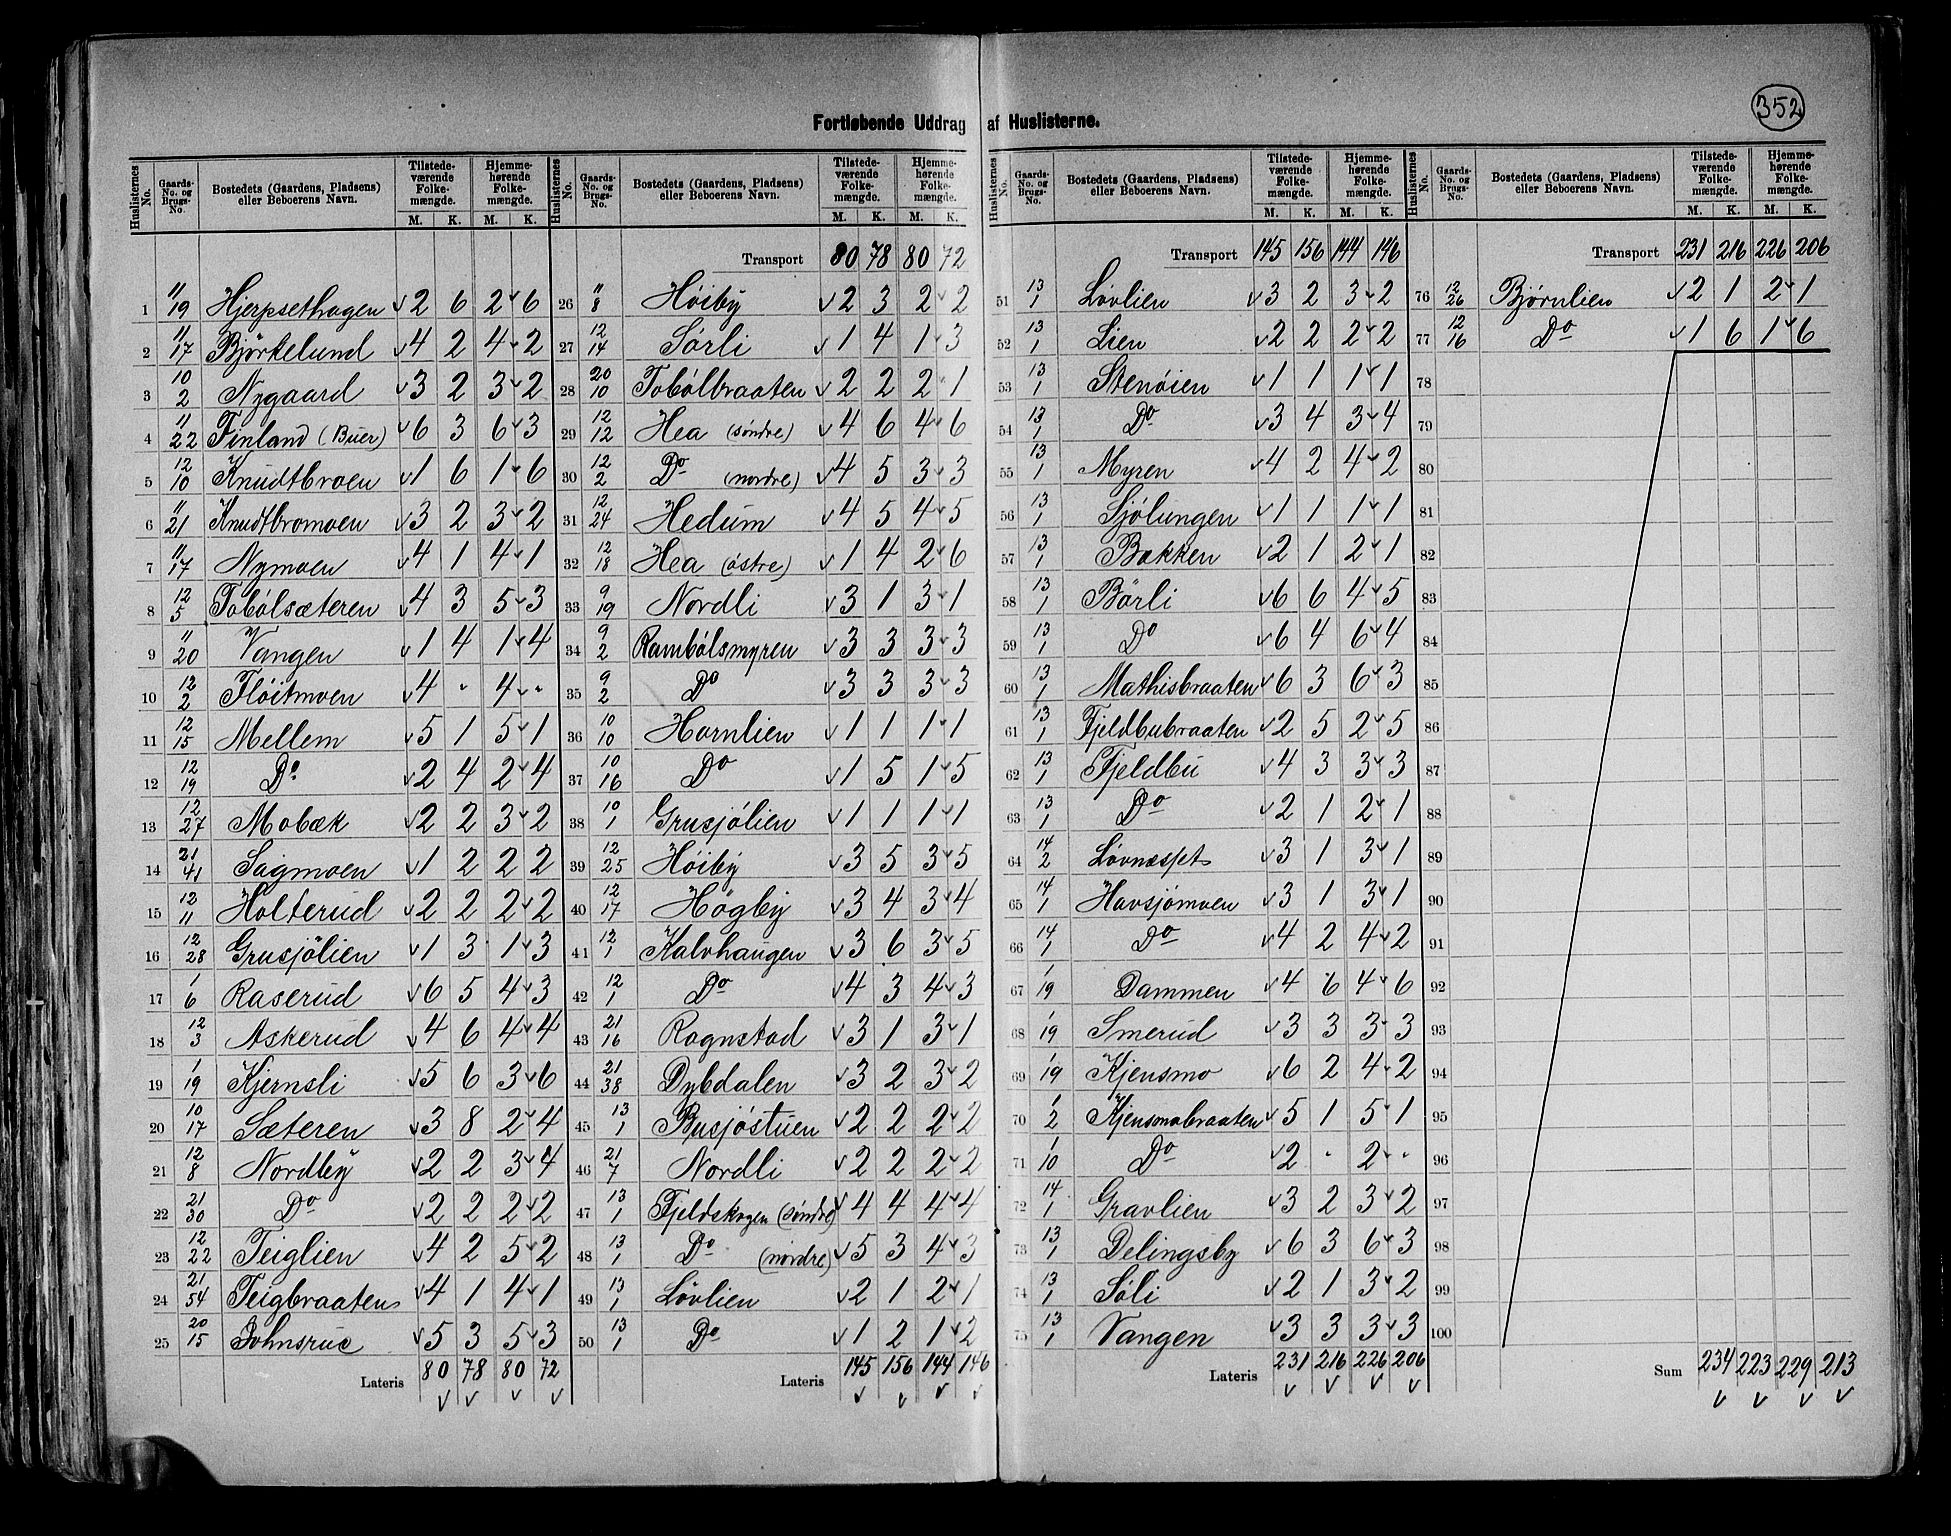 352
Fortløbende Uddrag af Huslisterne.
Huslisternes No. Gaards-No. og Brugs-No. Bostedets (Gaardens, Pladsens) eller Beboerens Navn. Tilstedeværende Folkemængde. M. K. Hjemmehørende Folkemængde. M. K.
1 11/19 Hjerpsethagen 2 6 2 6
2 11/17 Björkelund 4 2 4 2
3 10/2 Nygaard 3 2 3 2
4 11/22 Finland (Buer) 6 3 6 3
5 12/10 Knudtbroen 1 6 1 6
6 11/21 Knudtbromoen 3 2 3 2
7 11/17 Nymoen 4 1 4 1
8 12/5 Tobölsæteren 4 3 5 3
9 11/20 Vangen 1 4 1 4
10 12/2 Flöitmoen 4 " 4 "
11 12/15 Mellem 5 1 5 1
12 12/19 Do 2 4 2 4
13 12/27 Mobæk 2 2 3 2
14 21/41 Sagmoen 1 2 2 2
15 12/11 Holterud 2 2 2 2
16 12/28 Grusjölien 1 3 1 3
17 1/6 Raserud 6 5 4 3
18 12/3 Askerud 4 6 4 4
19 1/19 Kjernsli 5 6 3 6
20 10/17 Sæteren 3 8 2 4
21 12/8 Nordby 2 2 3 4
22 21/30 Do 2 2 2 2
23 12/22 Teiglien 4 2 5 2
24 21/54 Teigbraaten 4 1 4 1
25 20/15 Johnsrud 5 3 5 3
Lateris 80 78 80 72
Transport 80 78 80 72
26 11/8 Höiby 2 3 2 2
27 12/14 Sörli 1 4 1 3
28 20/10 Tobölbraaten 2 2 2 1
29 12/12 Hea (söndre) 4 6 4 6
30 12/2 Do (nordre) 4 5 3 3
31 12/24 Hedum 4 5 4 5
32 12/18 Hea (östre) 1 4 2 6
33 9/19 Nordli 3 1 3 1
34 9/2 Rambölsmyren 3 3 3 3
35 9/2 Do 3 3 3 3
36 10/10 Hornlien 1 1 1 1
37 10/16 Do 1 5 1 5
38 10/1 Grusjölien 1 1 1 1
39 12/25 Höiby 3 5 3 5
40 12/17 Högby 3 4 3 4
41 12/1 Kalvhaugen 3 6 3 5
42 12/1 Do 4 3 4 3
43 21/16 Rognstad 3 1 3 1
44 21/38 Dybdalen 3 2 3 2
45 13/1 Busjöstuen 2 2 2 2
46 21/7 Nordli 2 2 2 2
47 13/1 Fjeldskogen (söndre) 4 4 4 4
48 13/1 Do (nordre) 5 3 4 3
49 13/1 Lövlien 2 1 2 1
50 13/1 Do 1 2 1 2
Lateris 145 156 144 146
Transport 145 156 144 146
51 13/1 Lövlien 3 2 3 2
52 13/1 Lien 2 2 2 2
53 13/1 Stenöien 1 1 1 1
54 13/1 Do 3 4 3 4
55 13/1 Myren 4 2 4 2
56 13/1 Sjölungen 1 1 1 1
57 13/1 Bakken 2 1 2 1
58 13/1 Börli 6 6 4 5
59 13/1 Do 6 4 6 4
60 13/1 Mathisbraaten 6 3 6 3
61 13/1 Fjeldbubraaten 2 5 2 5
62 13/1 Fjeldbu 4 3 3 3
63 13/1 Do 2 1 2 1
64 14/2 Lövnæsset 3 1 3 1
65 14/1 Havsjömoen 3 1 3 1
66 14/1 Do 4 2 4 2
67 1/19 Dammen 4 6 4 6
68 1/19 Smerud 3 3 3 3
69 1/19 Kjensmo 6 2 4 2
70 1/2 Kjensmobraaten 5 1 5 1
71 1/10 Do 2 " 2 "
72 14/1 Gravlien 3 2 3 2
73 13/1 Delingsby 6 3 6 3
74 13/1 Söli 2 1 3 2
75 13/1 Vangen 3 3 3 3
Lateris 231 216 226 206
Transport 231 216 226 206
76 12/26 Bjørnlien 2 1 2 1
77 12/16 Do 1 6 1 6
78
79
80
81
82
83
84
85
86
87
88
89
90
91
92
93
94
95
96
97
98
99
100
Sum 234 223 229 213